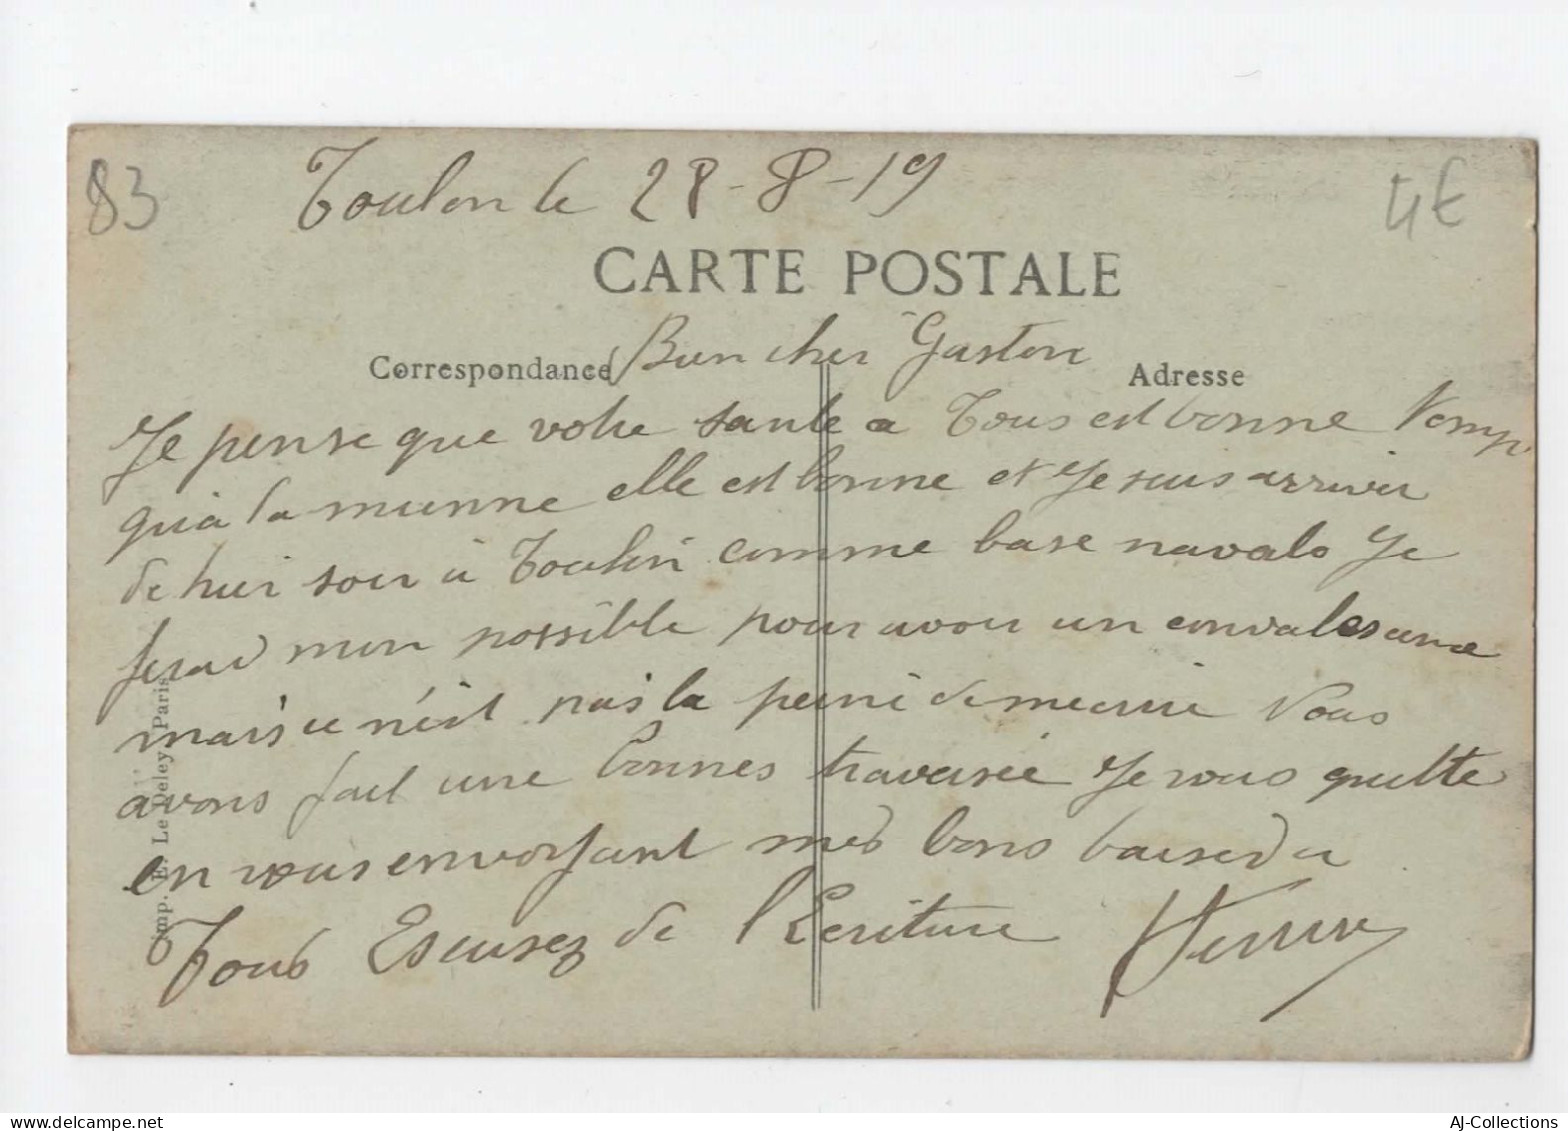 83
Toulon le 28-8-19
4€
CARTE POSTALE
Correspondance
Bien cher Gaston
Adresse
Je pense que votre sante a Tous est bonne
qua la mienne elle est bonne et Je suis arriver
de hier soir à Toulon comme base navale Je
ferai mon possible pour avoir un convalesance
mais ce n'est pas la peine de mecrire Nous
avons fait une bonnes traversée Je vous quitte
en vous envoyant mes bons baiser a
Tous Escusez de l'Ecriture
Imp. E. Le Deley, Paris
AJ-Collections